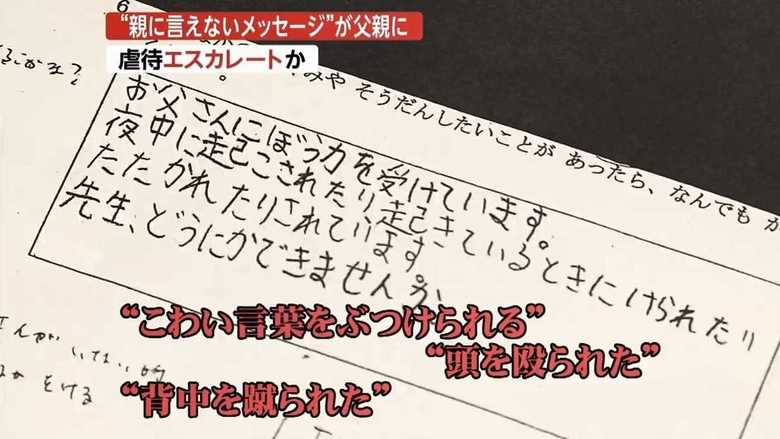 “親に言えないメッセージ”が父親に
虐待エスカレートか
6
みや そうだんしたいことが あったら、なんでも か
お父さんにぼう力を受けています。
夜中に起こされたり起きているときにけられたり
たたかれたりされています。
先生、どうにかできませんか。
“こわい言葉をぶつけられる”
“頭を殴られた”
“背中を蹴られた”